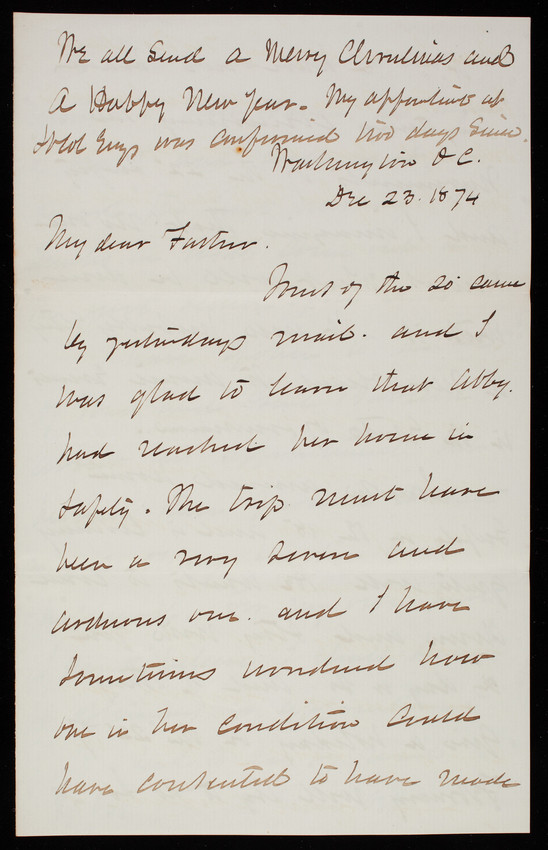 We all send a Merry Christmas and
A Happy New Year. My appointmt as
Col Engs was confirmed two days since.
Washington D.C.
Dec 23. 1874
My dear Father.
Yours of the 20 came
by yesterdays mail. and I
was glad to learn that Abby.
had reached her home in
safety. The trip must have
been a very severe and
arduous one. and I have
sometimes wondered how
one in her condition could
have consented to have made